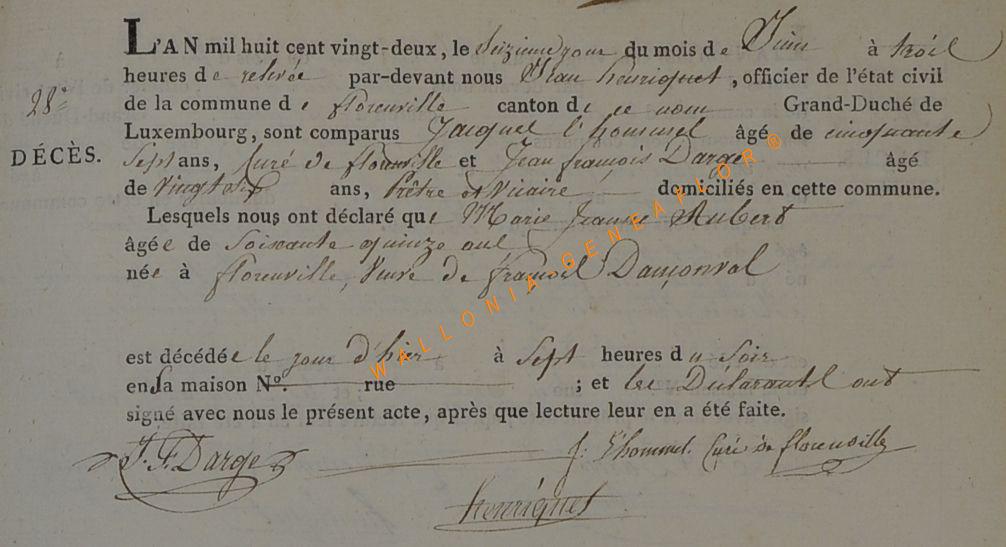 L'AN mil huit cent vingt-deux, le Seizieme jour du mois de Juin à trois
heures de relevée par-devant nous Jean henriquet, officier de l'état civil
28e
de la commune de florenville canton de ce nom Grand-Duché de
Luxembourg, sont comparus Jacques l'hommel âgé de cinquante
DÉCÈS.
Sept ans, Curé de florenville et Jean françois Darge âgé
de Vingt ans, Prêtre et Vicaire domiciliés en cette commune.
Lesquels nous ont déclaré que Marie Jeanne Aubert
âgée de Soixante quinze ans
née à florenville, Veuve de françois Damonval
est décédée le jour d'hier à Sept heures du Soir
en sa maison N°. rue ; et les Déclarants ont
signé avec nous le présent acte, après que lecture leur en a été faite.
J. F. Darge J. l'hommel Curé de florenville
henriquet
WALLONIA GENEAFLOR ®